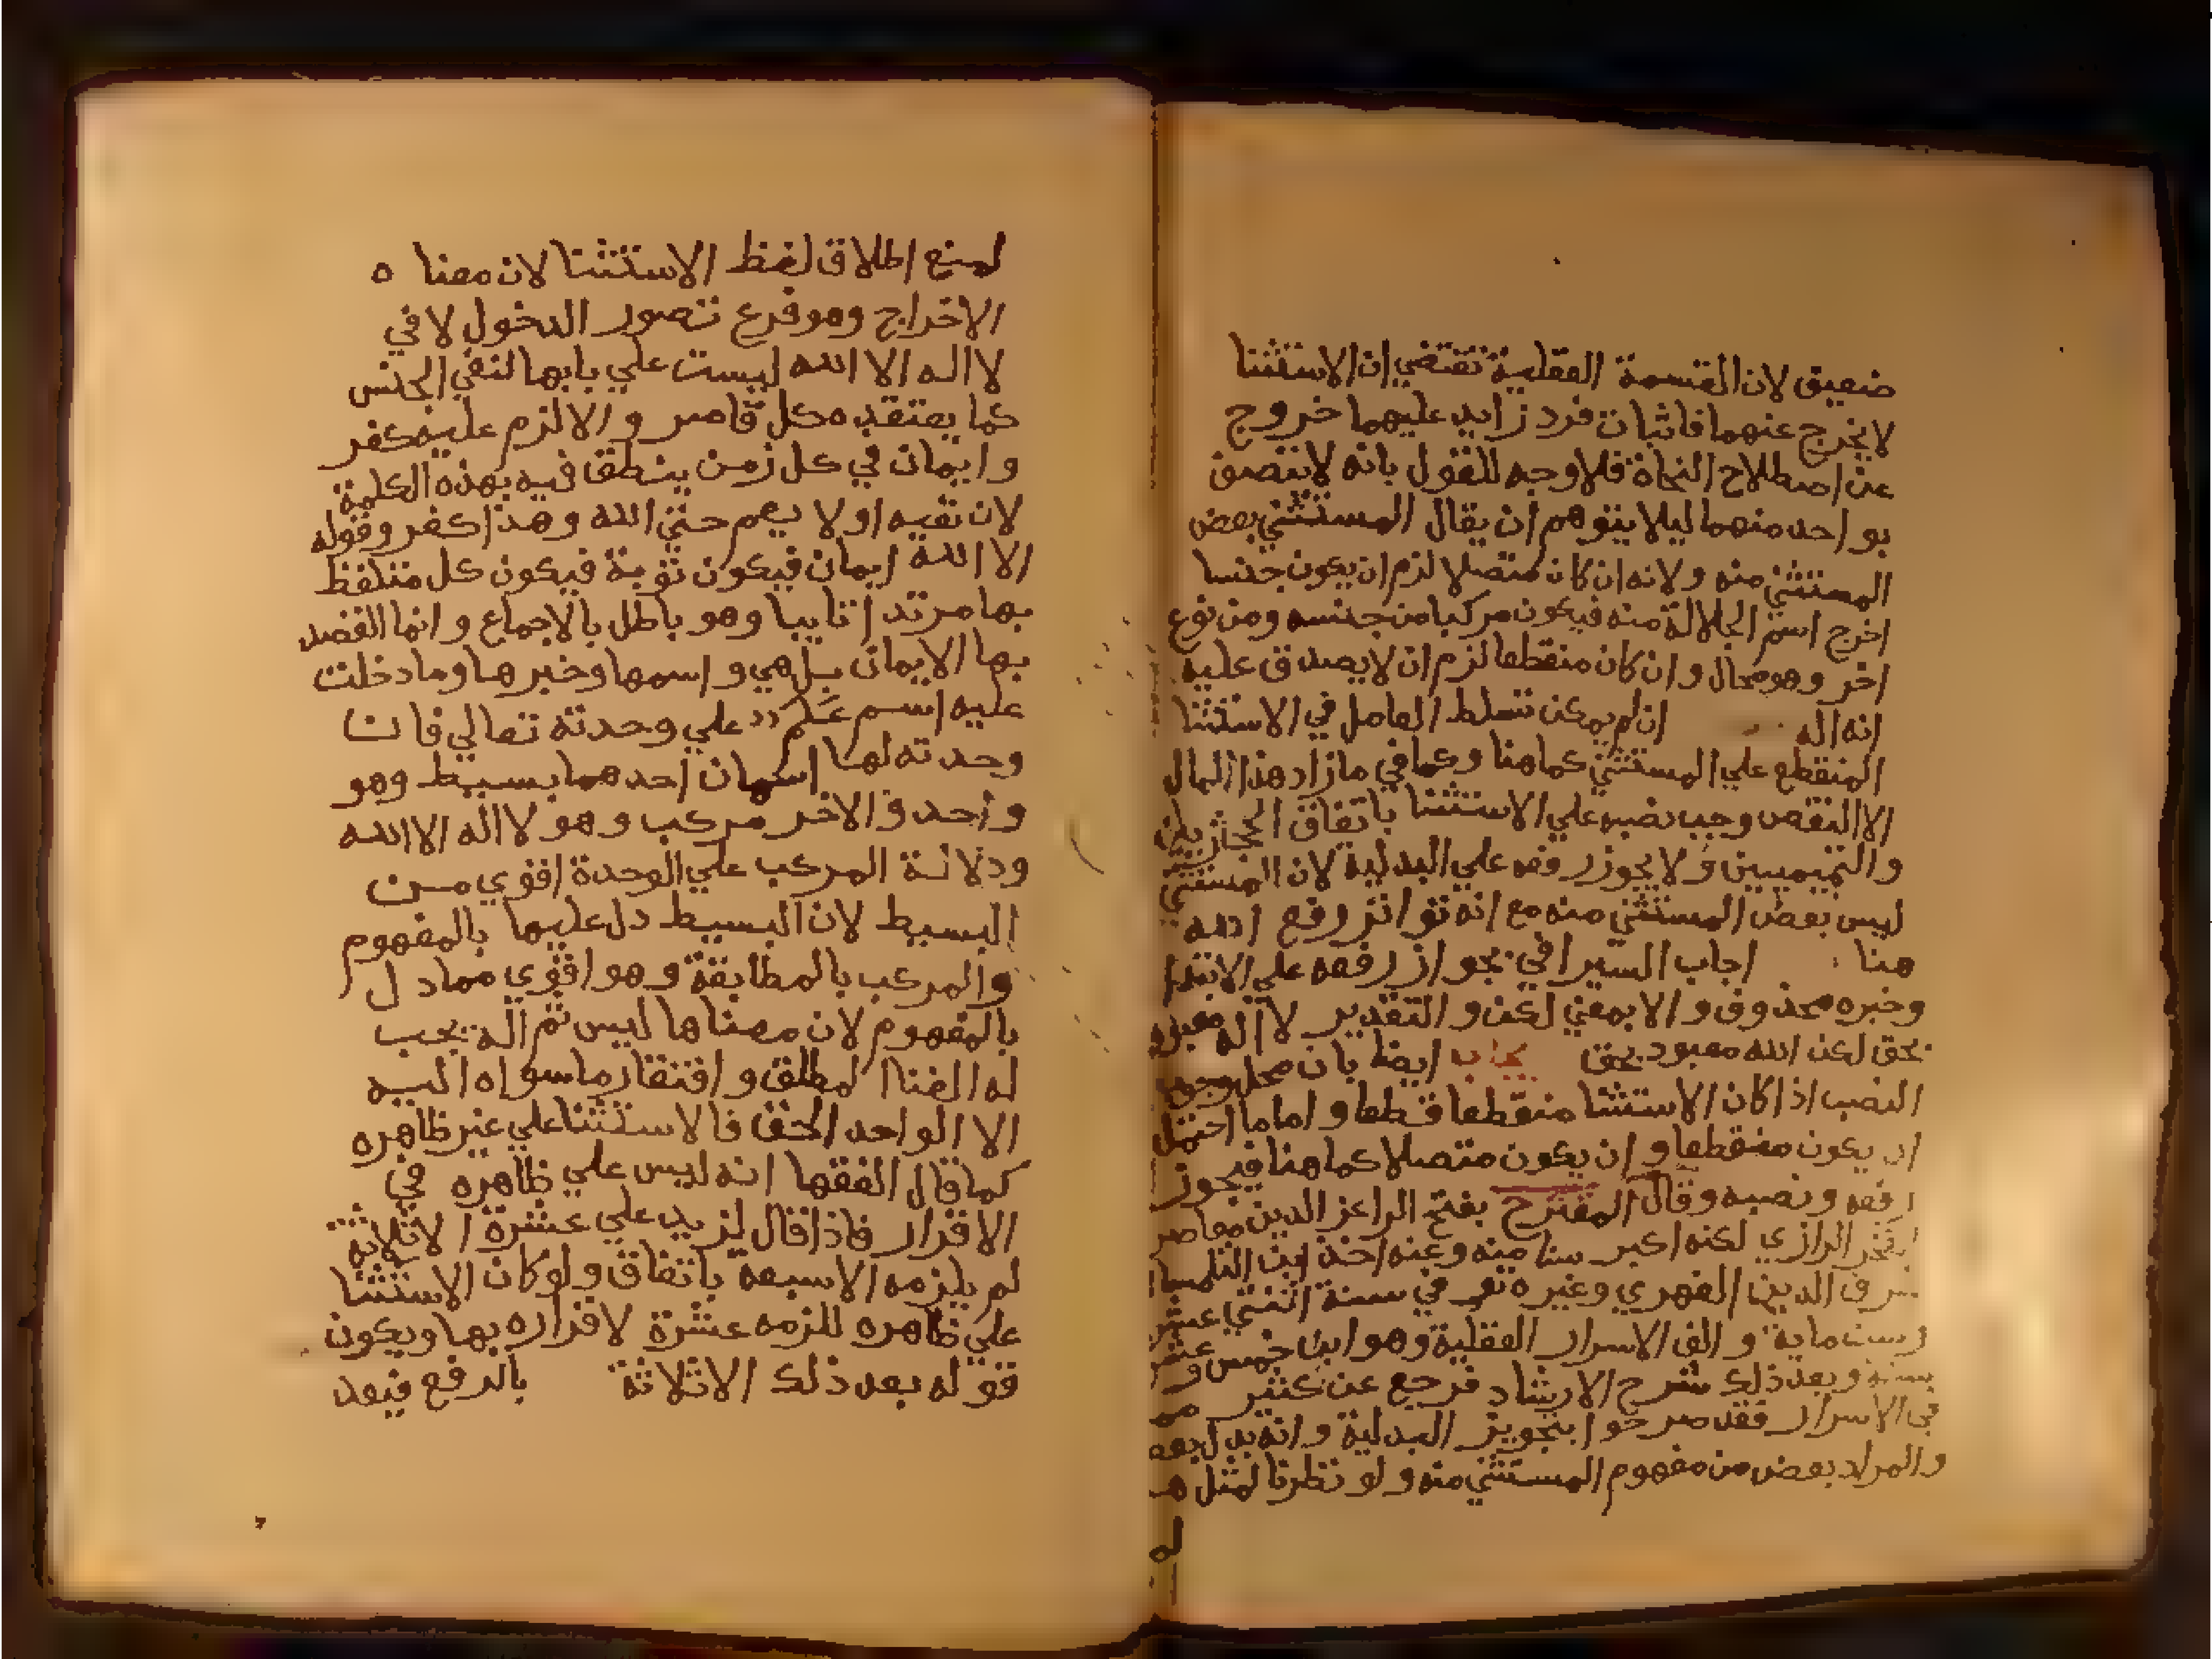 ضعيق لان القسمة العقلية تقتضي ان الاستثنا
لا يخرج عنهما فاثبات فرد زايد عليهما خروج
عن اصطلاح النحاة فلا وجه للقول بانه لا يتصف
بواحد منهما ليلا يتوهم ان يقال المستثني بعض
المستثني منه ولانه ان كان متصلا لزم ان يكون جنسا
اخرج اسم الجلالة منه فيكون مركبا من جنسه ومن نوع
اخر وهو محال وان كان منقطعا لزم ان لا يصدق عليه
انه اله ان لم يمكن تسلط العامل في الاستثنا
المنقطع علي المستثني كما هنا وكما في ما زاد هذا المال
الا النقص وجب نصبه علي الاستثنا باتفاق الحجازيين
والتميميين ولا يجوز رفعه علي البدلية لان المستثني
ليس بعض المستثني منه مع انه تواتر رفع الله
هنا اجاب السيرافي بجواز رفعه علي الابتدا
وخبره محذوف والا بمعني لكن والتقدير لا اله معبود
بحق لكن الله معبود بحق يجاب ايضا بان محل وجوب
النصب اذا كان الاستثنا منقطعا قطعا واما ما احتمل
ان يكون منقطعا وان يكون متصلا كما هنا فيجوز
رفعه ونصبه وقال المقترح بفتح الرا عز الدين معاصر
الفخر الرازي لكنه اكبر سنا منه وعنه اخذ ابن التلمسا
شرف الدين الفهري وغيره توفي في سنة اثنتي عشر
وست ماية والف الاسرار العقلية وهو ابن خمس وعشر
سنة وبعد ذلك شرح الارشاد فرجع عن كثير مم
في الاسرار فقد صرحوا بتجويز البدلية وانه بدل بعض
والمراد بعض من مفهوم المستثني منه ولو نظرنا لمثل هـ
لمنع اطلاق لفظ الاستثنا لان معنا ه
الاخراج وهو فرع تصور الدخول لا في
لا اله الا الله ليست علي بابها لنفي الجنس
كما يعتقده كل قاصر والا لزم عليه كفر
وايمان في كل زمن ينطق فيه بهذه الكلمة
لان نفيه اولا يعم حتي الله وهذا كفر وقوله
الا الله ايمان فيكون توبة فيكون كل متلفظ
بها مرتدا تايبا وهو باطل بالاجماع وانما القصد
بها الايمان بل هي واسمها وخبرها وما دخلت
عليه اسم علم دد علي وحدته تعالي فان
وحدته لها اسمان احدهما بسيط وهو
واحد والاخر مركب وهو لا اله الا الله
ودلالة المركب علي الوحدة اقوي من
البسيط لان البسيط دل عليها بالمفهوم
والمركب بالمطابقة وهو اقوي مما دل
بالمفهوم لان معناها ليس ثم اله يجب
له الغنا المطلق وافتقار ما سواه اليه
الا الواحد الحق فالاستثنا علي غير ظاهره
كما قال الفقها انه ليس علي ظاهره في
الاقرار فاذا قال لزيد علي عشرة الا ثلاثة
لم يلزمه الا سبعة باتفاق ولو كان الاستثنا
علي ظاهره للزمه عشرة لاقراره بها ويكون
قوله بعد ذلك الا ثلاثة بالرفع فيعد